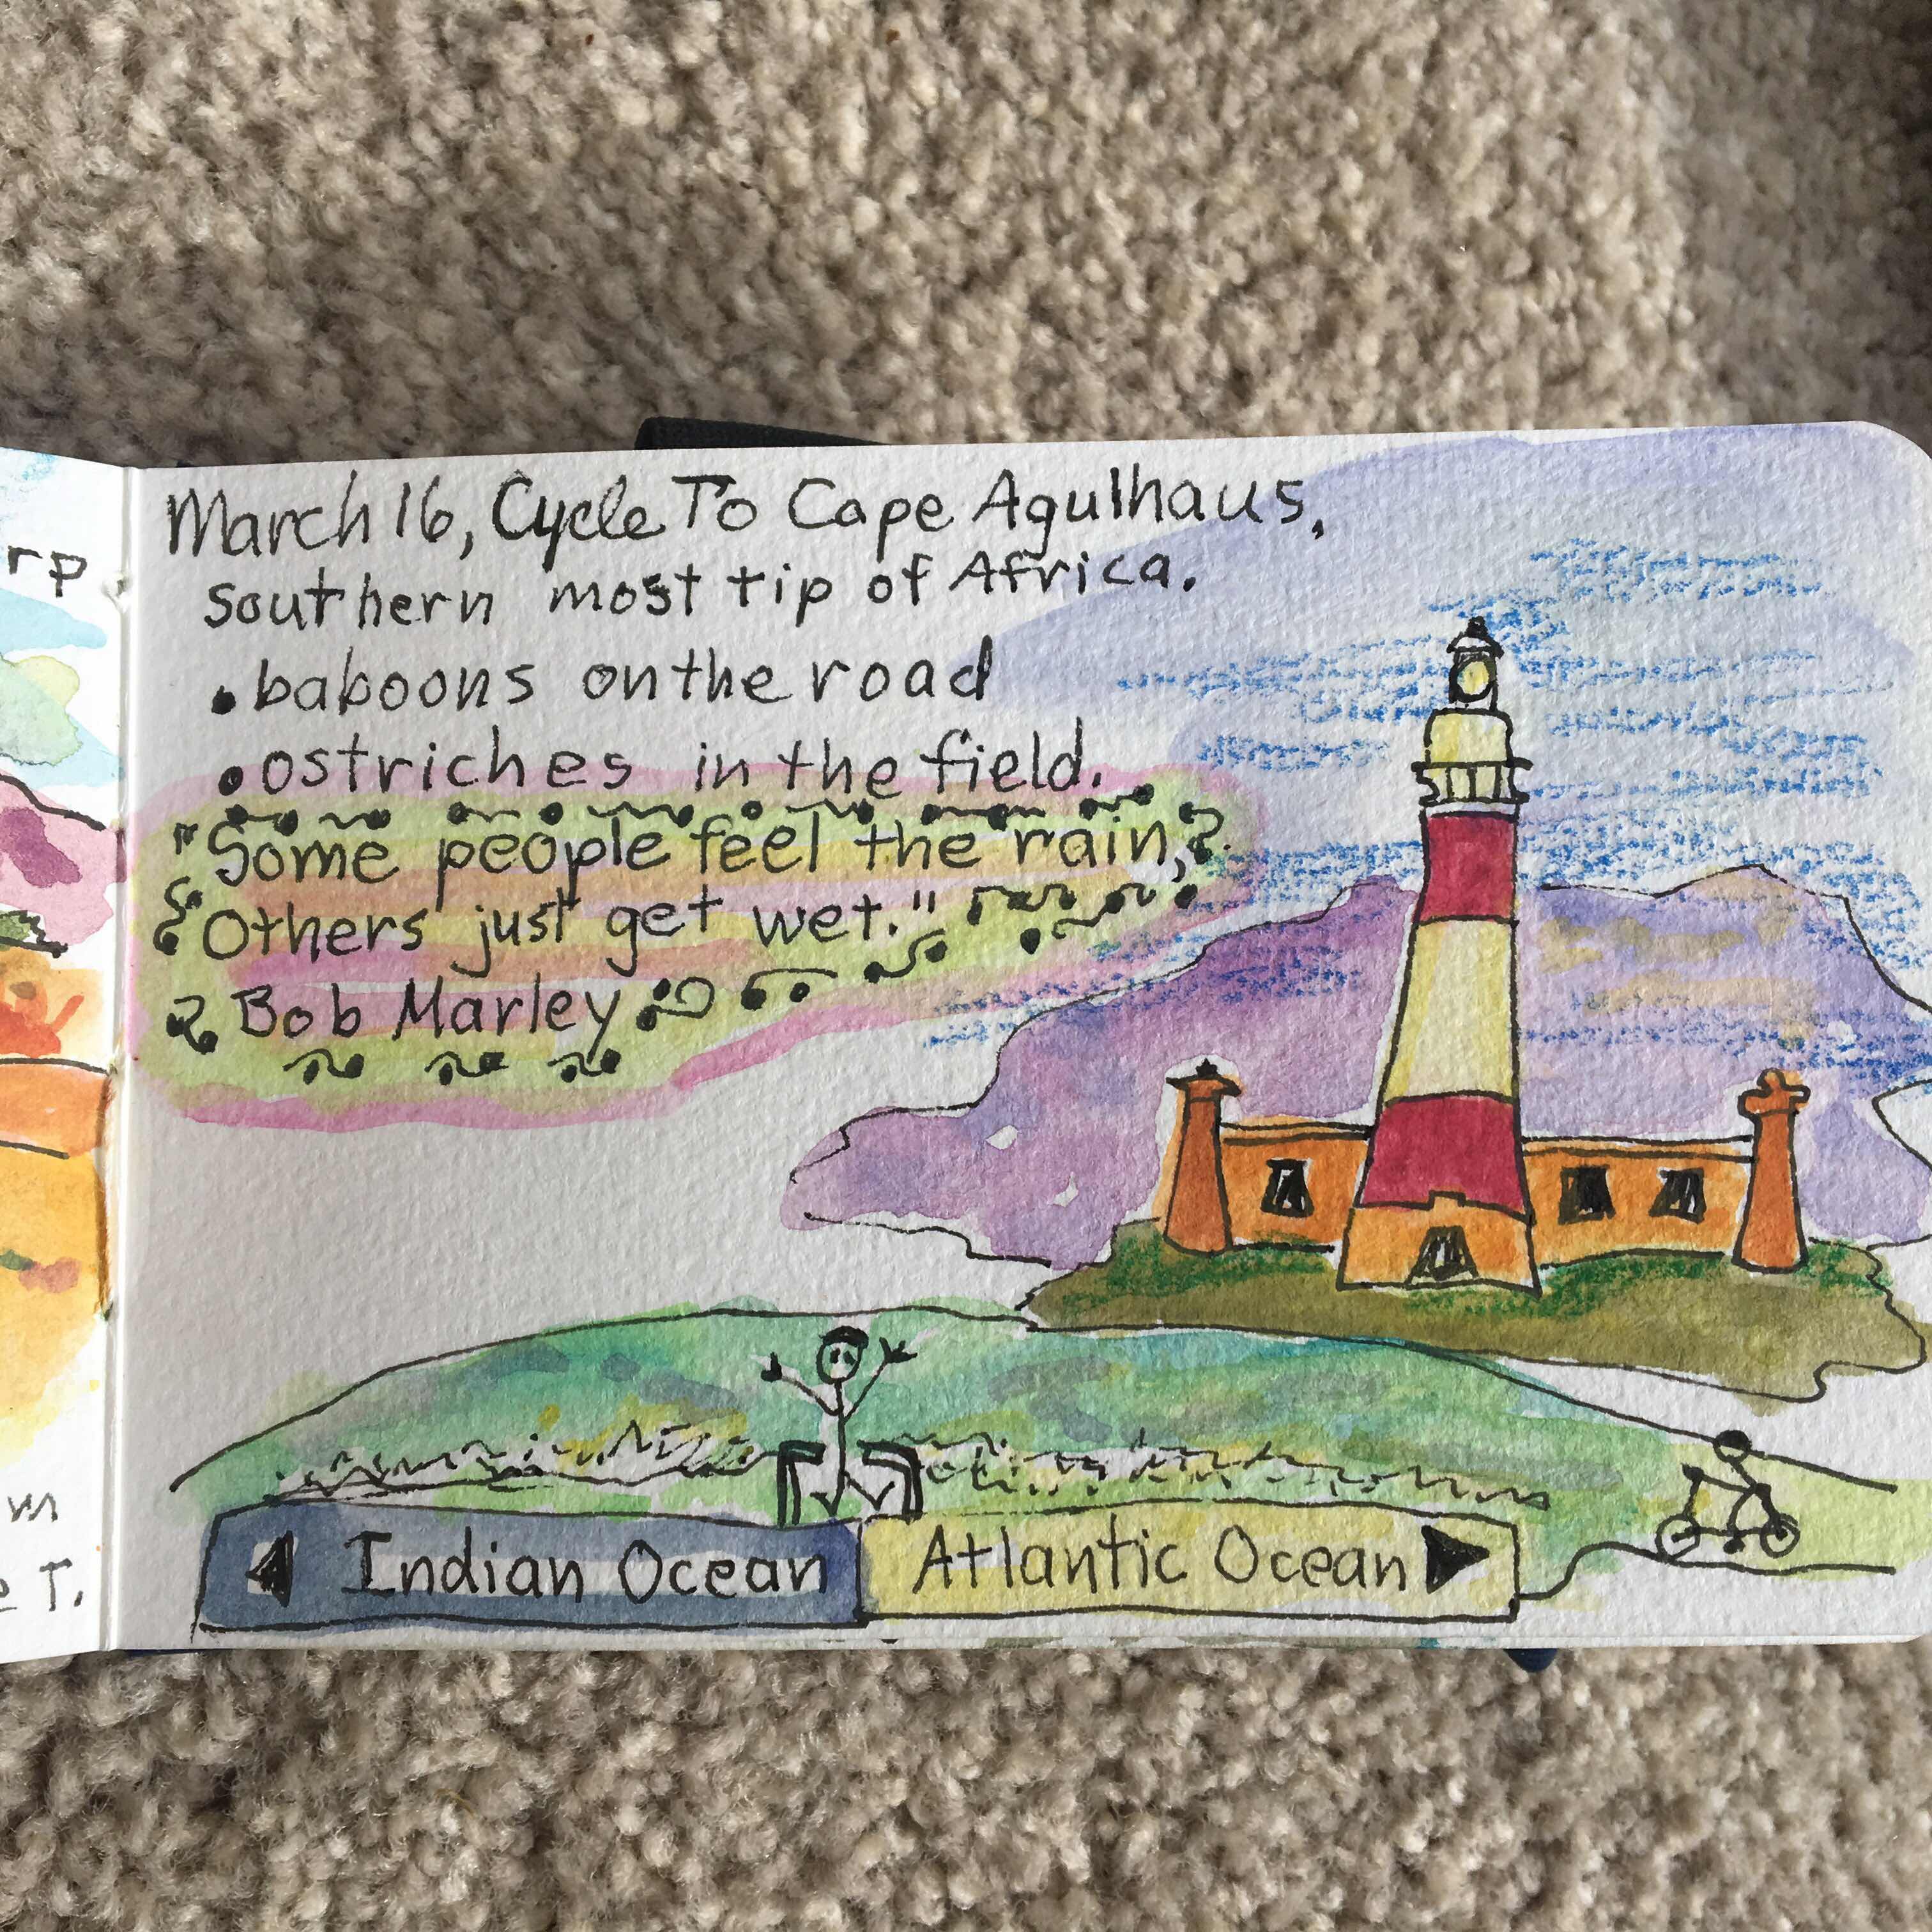 March 16, Cycle To Cape Agulhaus,
southern most tip of Africa.
• baboons on the road
• ostriches in the field.
"Some people feel the rain,
Others just get wet."
Bob Marley
◀ Indian Ocean
Atlantic Ocean ▶
rp
m
e T.